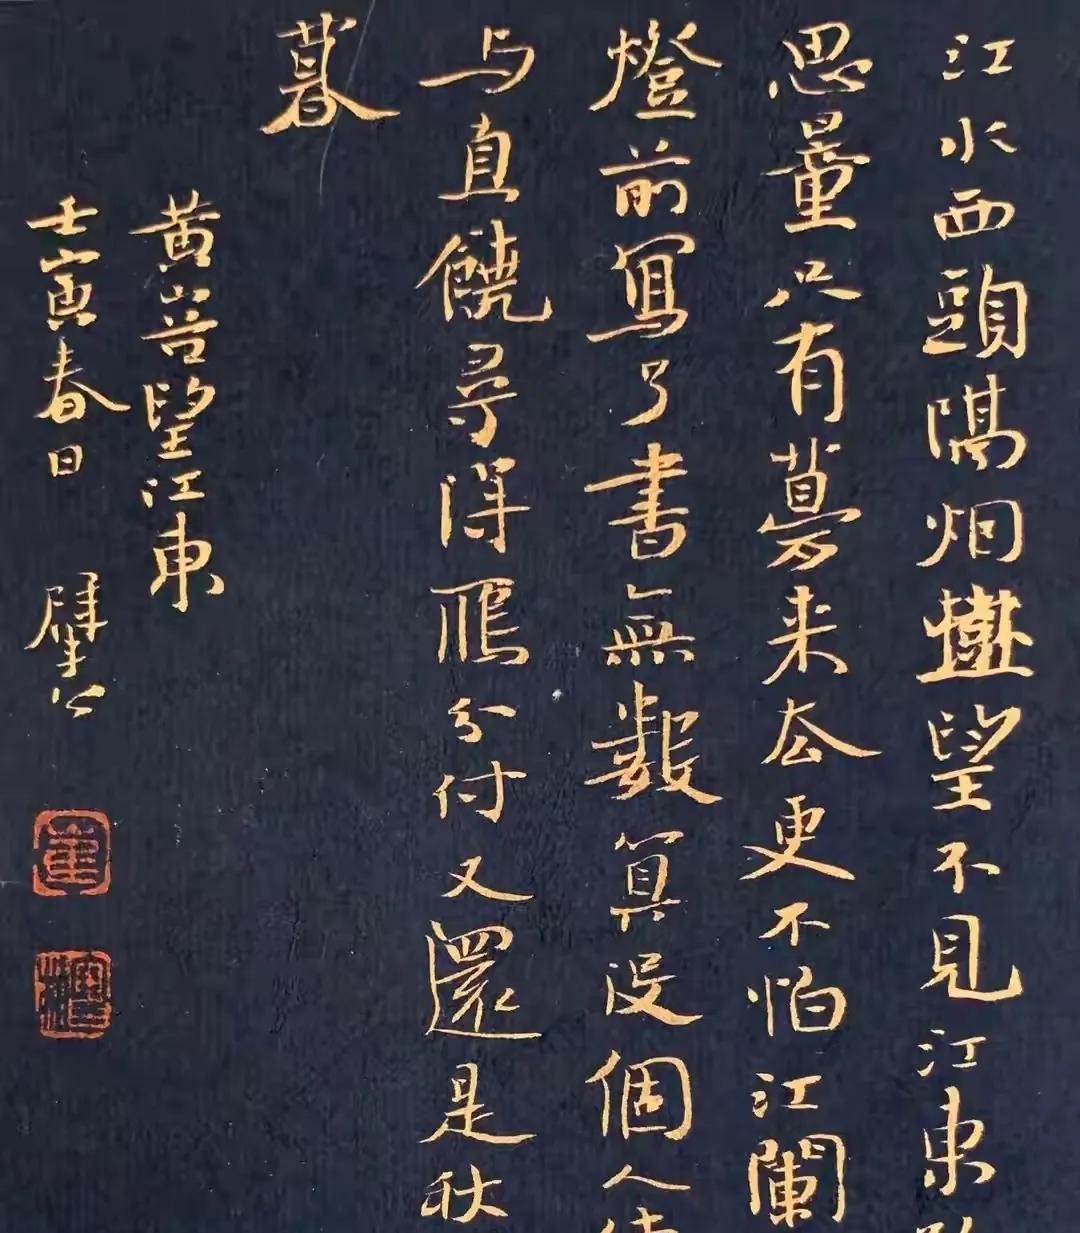 江水西頭隔烟樹望不見江東
思量只有夢来去更不怕江闌
燈前寫了書無數算沒個人
与直饒尋得雁分付又還是秋
暮
黄山谷望江東
壬寅春日